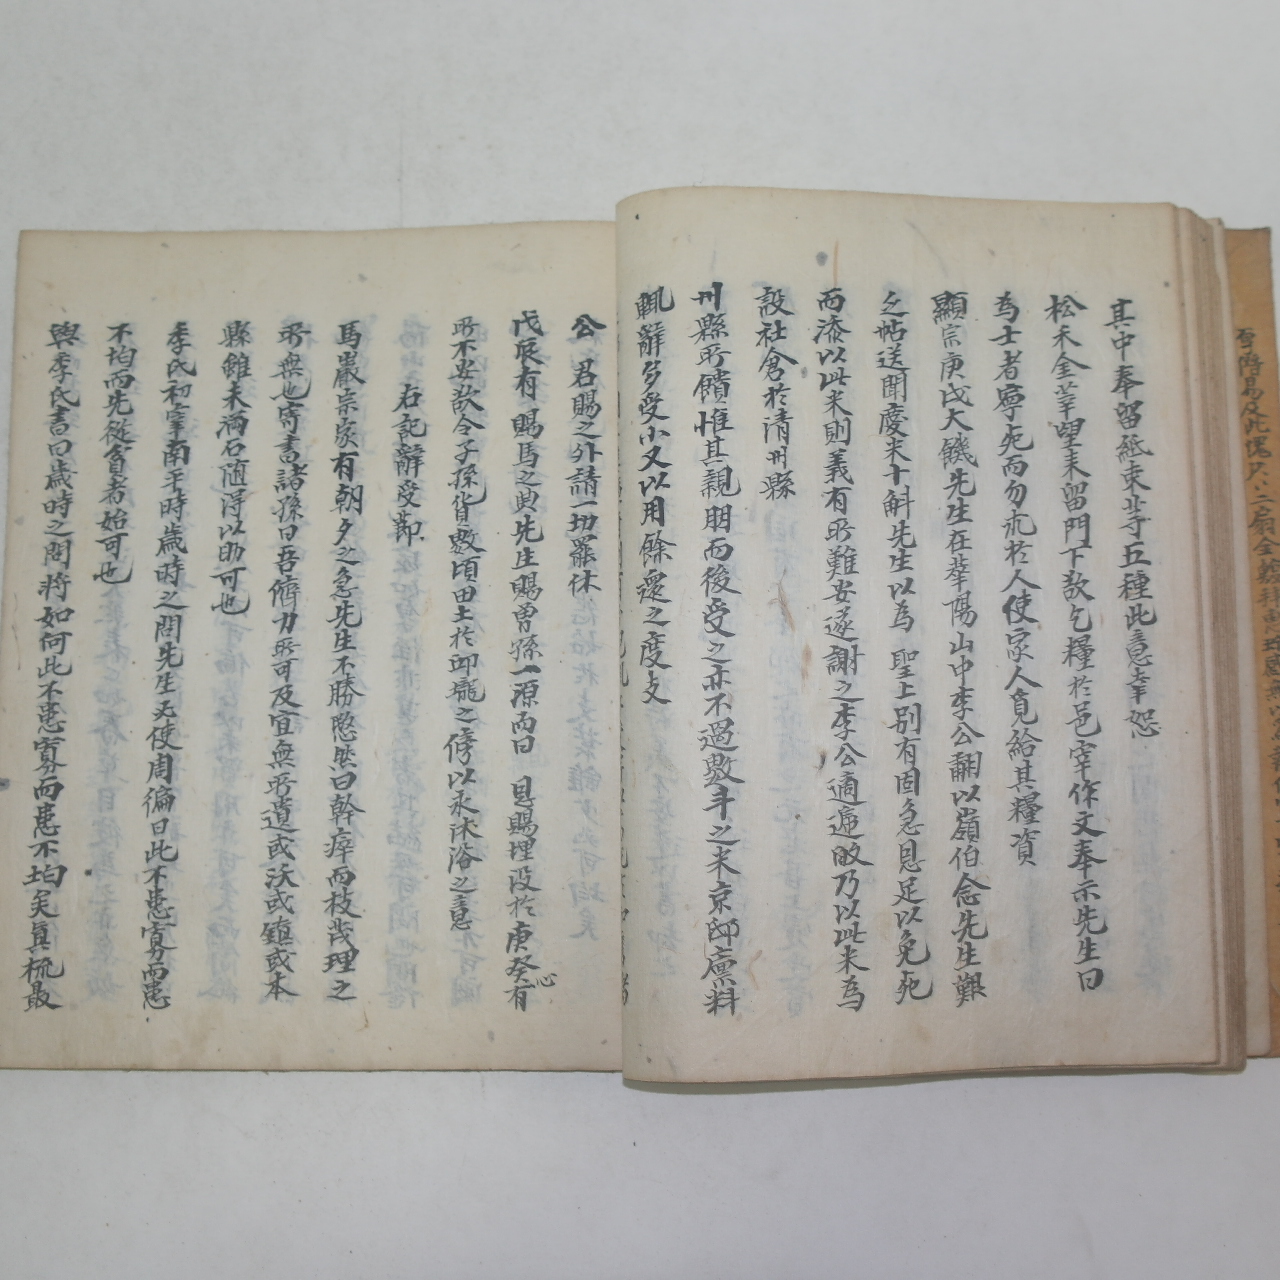 其中奉留紙束等五種此意幸恕
松禾金莘望未留門下欲乞糧於邑宰作文奉示先生曰
為士者寧死而勿求於人使家人覓給其糧資
顯宗庚戌大饑先生在華陽山中李公翻以嶺伯念先生艱
乏帖送聞慶米十斛先生以為 聖上別有固急恩足以免死
而添以此米則義有所難安遂謝之李公適遞畋乃以此米為
設社倉於清州縣
州縣所饋惟其親朋而後受之亦不過數斗之米京邸廩料
輒辭多受小又以用餘還之度支
公 君賜之外請一切罷休
戊辰有 賜馬之典先生賜曾孫一源而曰 恩賜埋沒於庚癸心有
所不安欲令子孫貨數頃田土於邱壟之傍以永沐浴之意
右記辭受節
馬巖宗家有朝夕之急先生不勝愍然曰幹瘁而枝茂理之
所無也寄書諸孫曰吾儕力所可及宜無所遺或沃或鎮或本
縣雖未滿石隨得以助可也
季氏初宰南平時歲時之問先生无使周徧曰此不患寡而患
不均而先從貧者始可也
與季氏書曰歲時之問將如何此不患寡而患不均矣真梳最